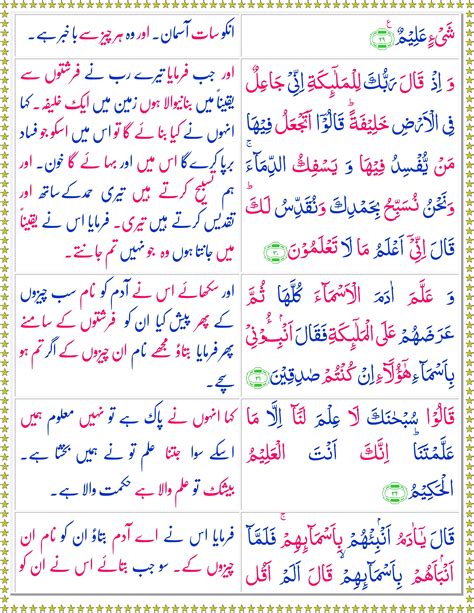 شَیْءٍ عَلِیْمٌ ۧ ﴿۲۹﴾
انکو سات آسمان۔ اور وہ ہر چیز سے با خبر ہے۔
وَ اِذْ قَالَ رَبُّكَ لِلْمَلٰٓئِكَةِ اِنِّیْ جَاعِلٌ
فِی الْاَرْضِ خَلِیْفَةً ؕ قَالُوْۤا اَتَجْعَلُ فِیْهَا
مَنْ یُّفْسِدُ فِیْهَا وَ یَسْفِكُ الدِّمَآءَ ۚ
وَنَحْنُ نُسَبِّحُ بِحَمْدِكَ وَنُقَدِّسُ لَكَ ؕ
قَالَ اِنِّیْۤ اَعْلَمُ مَا لَا تَعْلَمُوْنَ ﴿۳۰﴾
اور جب فرمایا تیرے رب نے فرشتوں سے
یقیناً میں بنانیوالا ہوں زمین میں ایک خلیفہ۔ کہا
انہوں نے کیا بنائے گا تو اس میں اسکو جو فساد
برپا کرے گا اس میں اور بہائے گا خون۔ اور
ہم تسبیح کرتے ہیں تیری حمد کے ساتھ اور
تقدیس کرتے ہیں تیری۔ فرمایا اس نے یقیناً
میں جانتا ہوں وہ جو نہیں تم جانتے۔
وَ عَلَّمَ اٰدَمَ الْاَسْمَآءَ كُلَّهَا ثُمَّ
عَرَضَهُمْ عَلَی الْمَلٰٓئِكَةِ فَقَالَ اَنْۢبِـُٔوْنِیْ
بِاَسْمَآءِ هٰۤؤُلَآءِ اِنْ كُنْتُمْ صٰدِقِیْنَ ﴿۳۱﴾
اور سکھائے اس نے آدم کو نام سب چیزوں
کے۔ پھر پیش کیا ان کو فرشتوں کے سامنے
پھر فرمایا بتاؤ مجھے نام ان چیزوں کے اگر تم ہو
سچے۔
قَالُوْا سُبْحٰنَكَ لَا عِلْمَ لَنَاۤ اِلَّا مَا
عَلَّمْتَنَا ؕ اِنَّكَ اَنْتَ الْعَلِیْمُ
الْحَكِیْمُ ﴿۳۲﴾
کہا انہوں نے پاک ہے تو نہیں معلوم ہمیں
اسکے سوا جتنا علم تو نے ہمیں بخشا ہے۔
بیشک تو علم والا ہے حکمت والا ہے۔
قَالَ یٰۤاٰدَمُ اَنْۢبِئْهُمْ بِاَسْمَآىِٕهِمْ ۚ فَلَمَّاۤ
اَنْۢبَاَهُمْ بِاَسْمَآىِٕهِمْ ۙ قَالَ اَلَمْ اَقُلْ
فرمایا اس نے اے آدم بتاؤ ان کو نام ان
چیزوں کے۔ سو جب بتائے اس نے ان کو